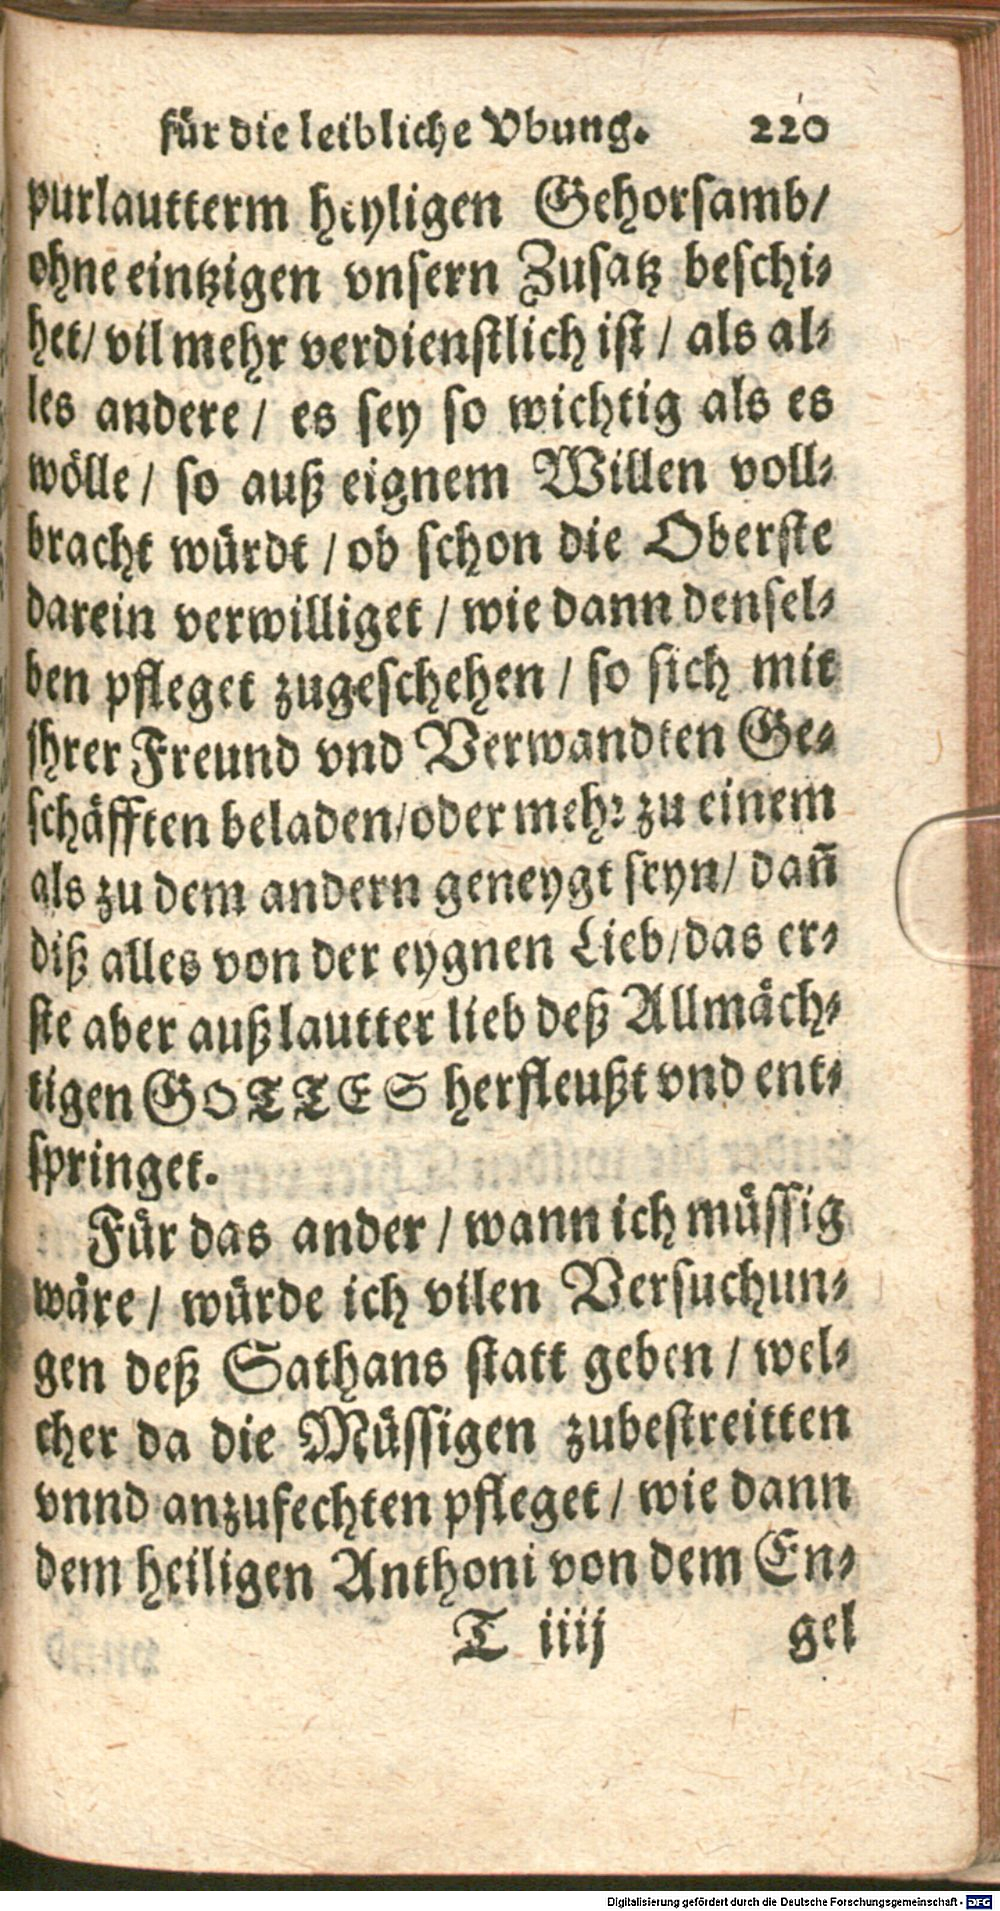 für die leibliche Vbung. 220
purlautterm heyligen Gehorsamb/
ohne eintzigen vnsern Zusatz beschi-
het/ vil mehr verdienstlich ist / als al-
les andere / es sey so wichtig als es
wölle / so auß eignem Willen voll-
bracht würdt / ob schon die Oberste
darein verwilliget / wie dann densel-
ben pfleget zugeschehen / so sich mit
jhrer Freund vnd Verwandten Ge-
schäfften beladen/oder mehr zu einem
als zu dem andern geneygt seyn/ dañ
diß alles von der eygnen Lieb/das er-
ste aber auß lautter lieb deß Allmäch-
tigen GOTTES herfleußt vnd ent-
springet.
Für das ander / wann ich müssig
wäre / würde ich vilen Versuchun-
gen deß Sathans statt geben / wel-
cher da die Müssigen zubestreitten
vnnd anzufechten pfleget / wie dann
dem heiligen Anthoni von dem En-
T iiij gel
Digitalisierung gefördert durch die Deutsche Forschungsgemeinschaft - DFG